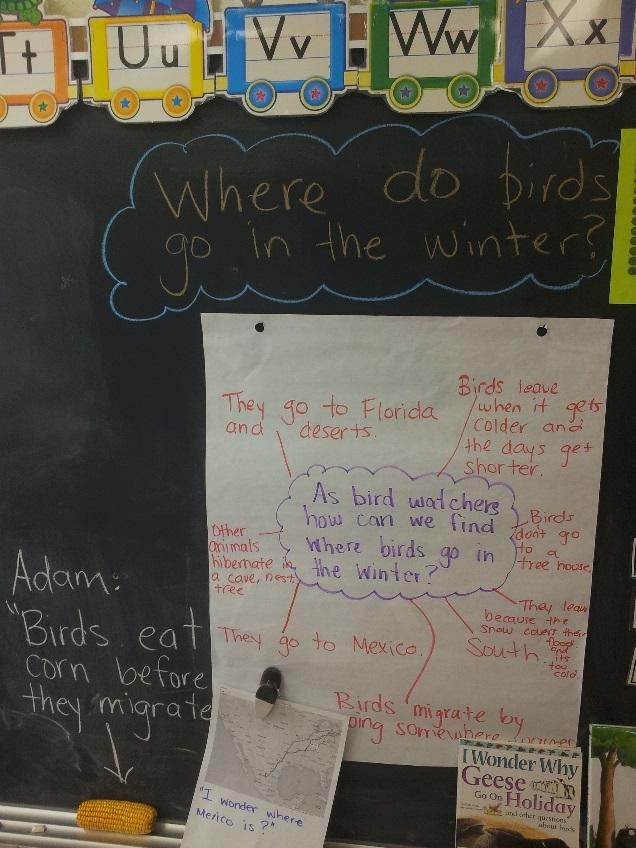 Tt Uu Vv Ww Xx
Where do birds
go in the winter?
They go to Florida
and deserts.
Birds leave
when it gets
colder and
the days get
shorter.
As bird watchers
how can we find
where birds go in
the winter?
Other
animals
hibernate in
a cave, nest,
tree
Birds
don't go
to a
tree house
They go to Mexico.
They leave
because the
snow covers their
food
and
its
too
cold.
South.
Birds migrate by
going somewhere warmer
Adam:
"Birds eat
corn before
they migrate
"I wonder where
Mexico is?"
I Wonder Why
Geese
Go On Holiday
and other questions
about birds